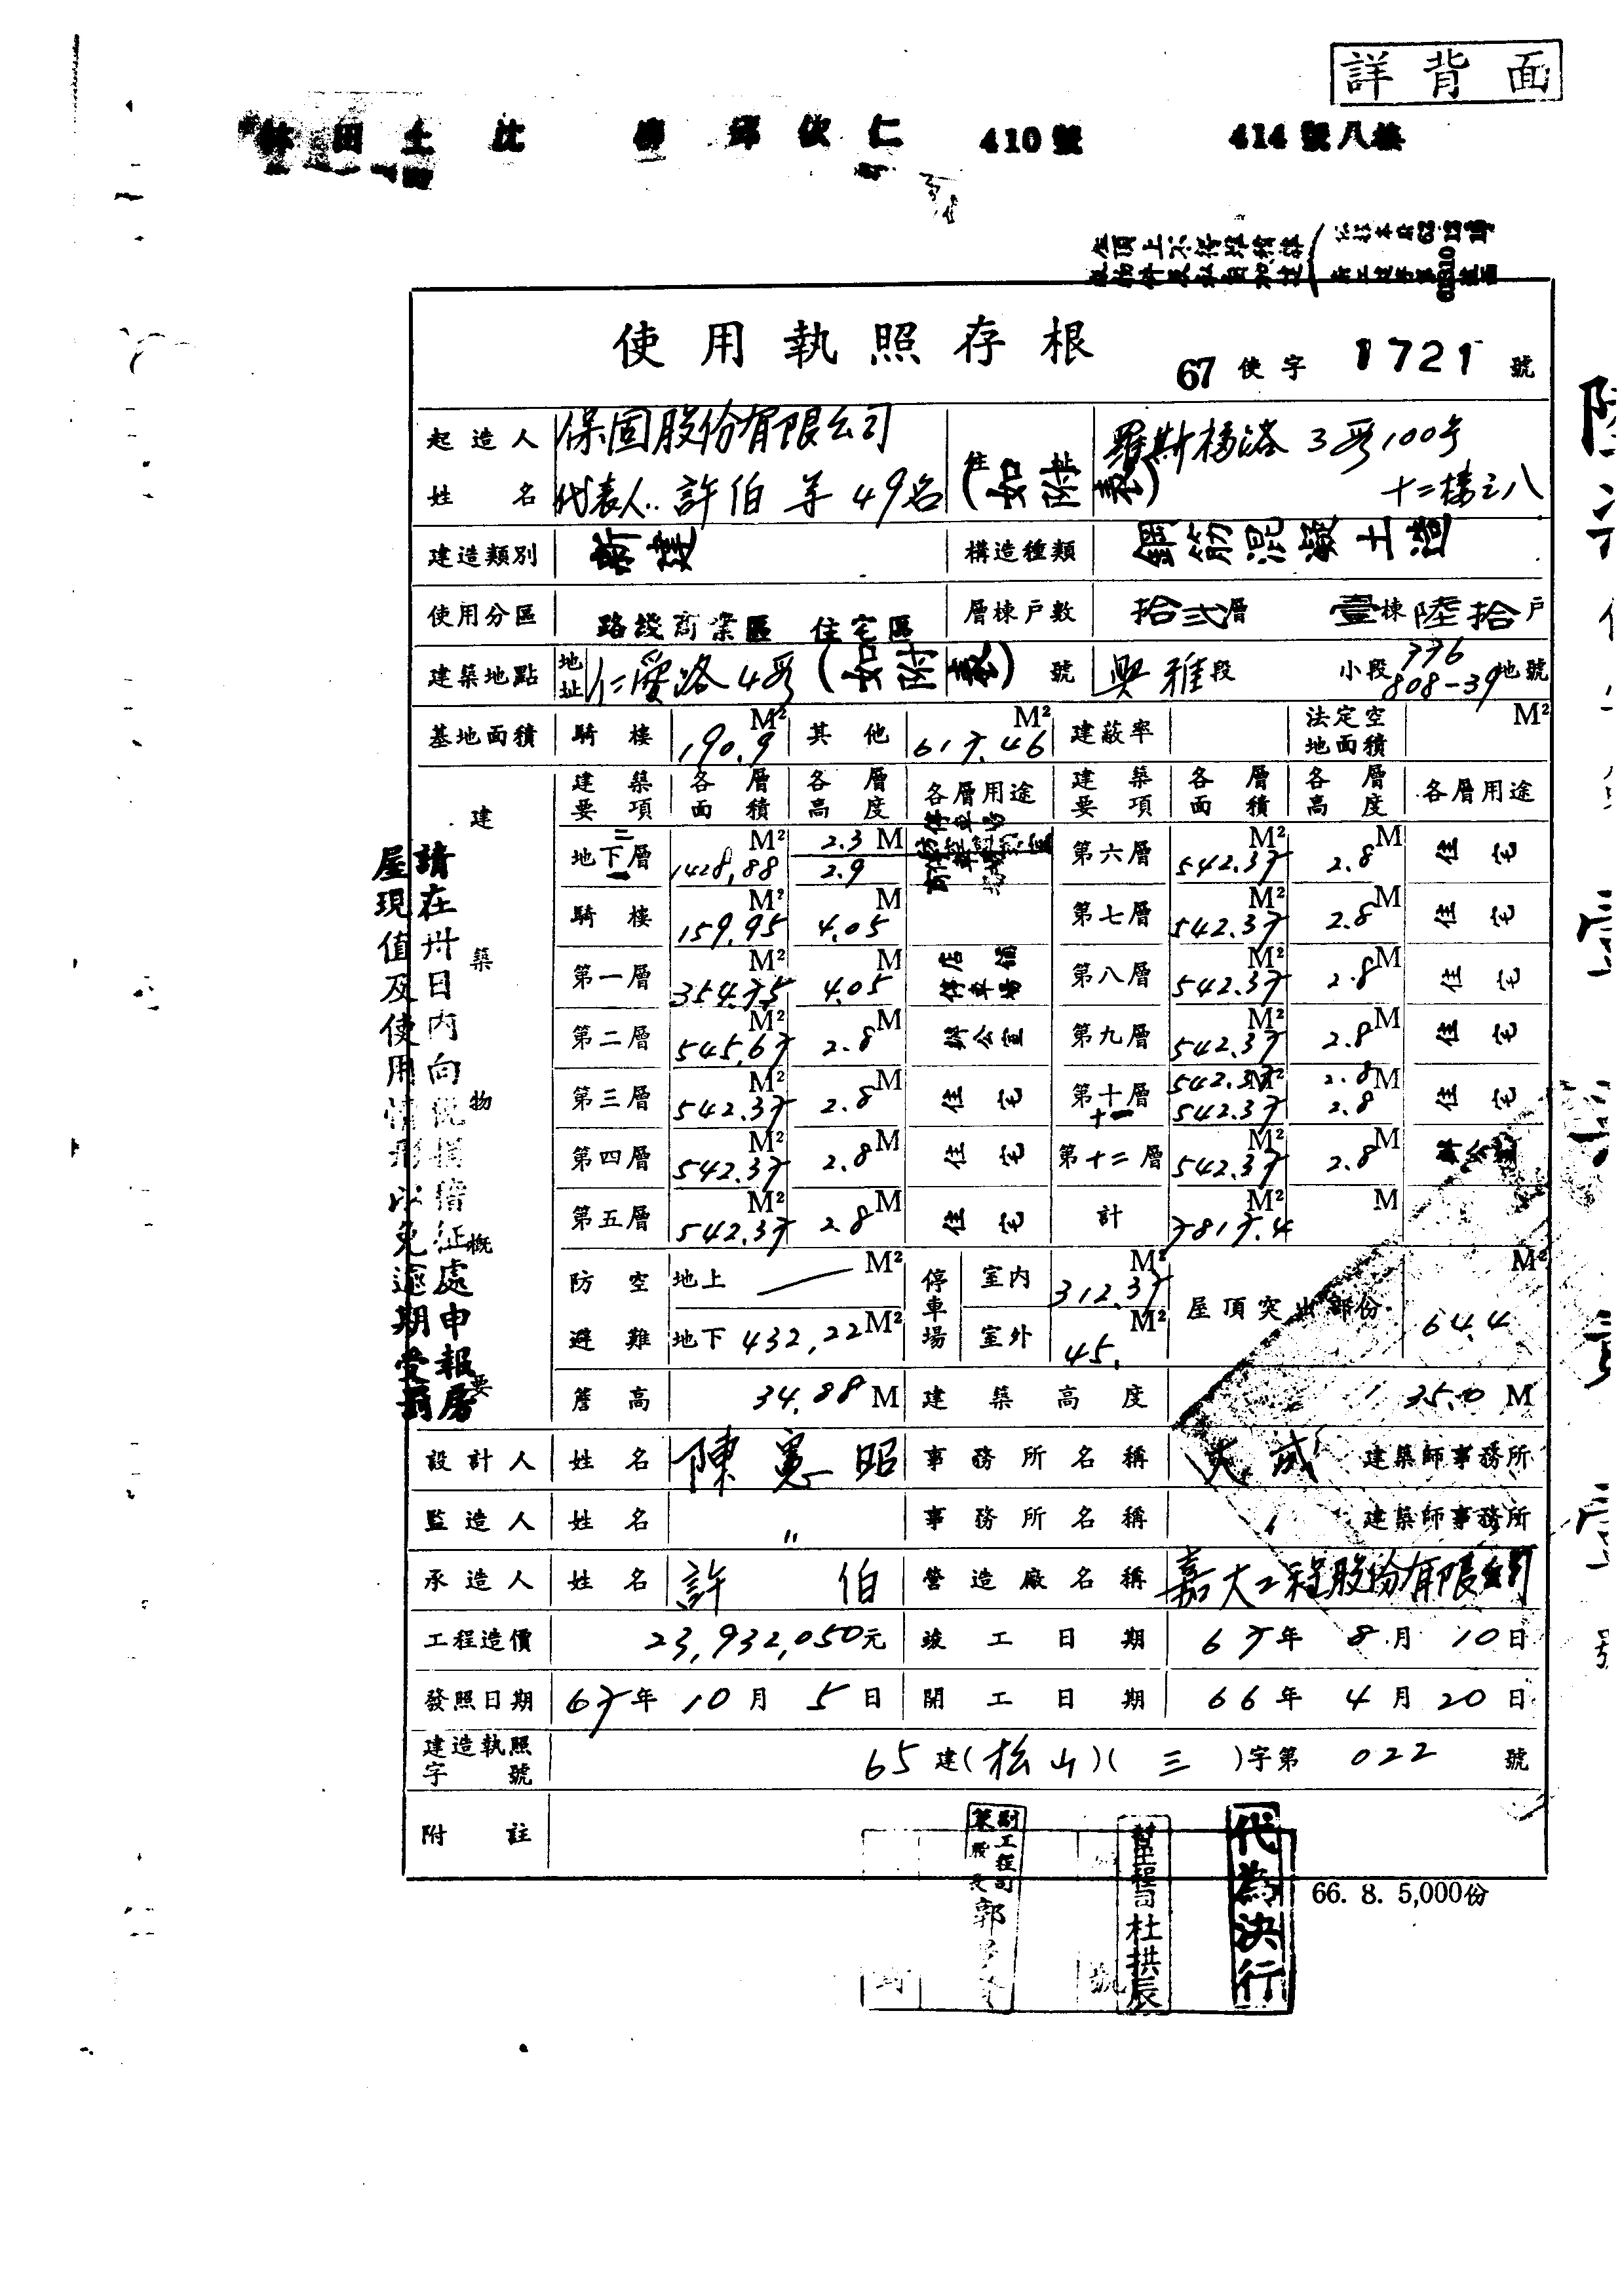 詳背面
410號 414號八樓
使用執照存根
67 使字 1721 號
起造人姓名 保固股份有限公司 代表人..許伯 等49名 住址 羅斯福路3段100号十二樓之八 (如附表)
建造類別 新建 構造種類 鋼筋混凝土造
使用分區 路綫商業區 住宅區 層棟戶數 拾弍層 壹棟陸拾戶
建築地點 地址 仁愛路4段(如附表)號 興雅段 小段 776 808-39 地號
基地面積 騎樓 190.9 M² 其他 617.46 M² 建蔽率 法定空地面積 M²
建築物概要
建築要項 各層面積 各層高度 各層用途 建築要項 各層面積 各層高度 各層用途
地下層 1428.88 M² 2.3 M 2.9 第六層 542.37 M² 2.8 M 住宅
騎樓 159.95 M² 4.05 M 第七層 542.37 M² 2.8 M 住宅
第一層 354.75 M² 4.05 M 店舖 停車場 第八層 542.37 M² 2.8 M 住宅
第二層 545.67 M² 2.8 M 辦公室 第九層 542.37 M² 2.8 M 住宅
第三層 542.37 M² 2.8 M 住宅 第十層 十一 542.37 M² 542.37 2.8 M 2.8 住宅
第四層 542.37 M² 2.8 M 住宅 第十二層 542.37 M² 2.8 M
第五層 542.37 M² 2.8 M 住宅 計 7817.4 M² M
防空避難 地上 M² 停車場 室內 312.37 M² 屋頂突出部份 64.4 M²
地下 432.22 M² 室外 45. M²
簷高 34.88 M 建築高度 35.0 M
設計人 姓名 陳憲昭 事務所名稱 大成 建築師事務所
監造人 姓名 〃 事務所名稱 建築師事務所
承造人 姓名 許伯 營造廠名稱 嘉大工程股份有限公司
工程造價 23,932,050元 竣工日期 67年8月10日
發照日期 67年10月5日 開工日期 66年4月20日
建造執照字號 65建(松山)(三)字第022號
附註
請在卅日內向 稽征處申報房
屋現值及使用情形以免逾期受罰
副工程司
郭
杜拱辰
代為決行
66. 8. 5,000份